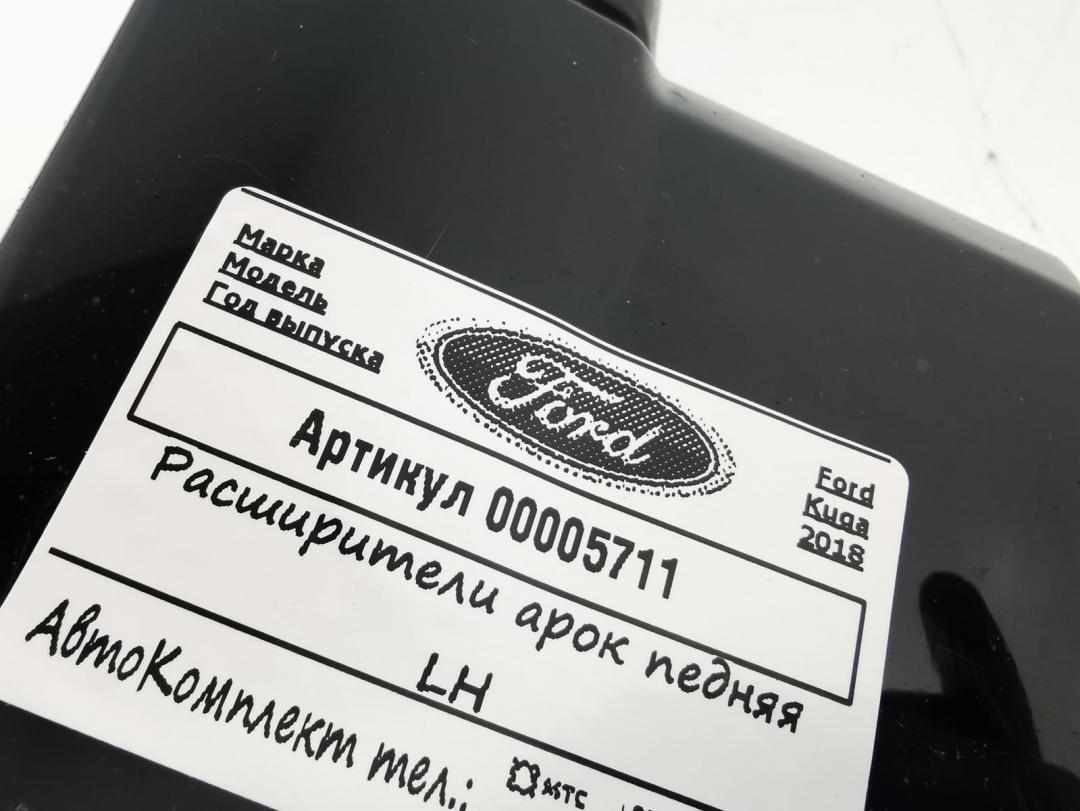 Марка
Модель
Год выпуска
Ford
Ford
Kuga
2018
Артикул 00005711
Расширители арок педняя
LH
АвтоКомплект тел.:
МТС